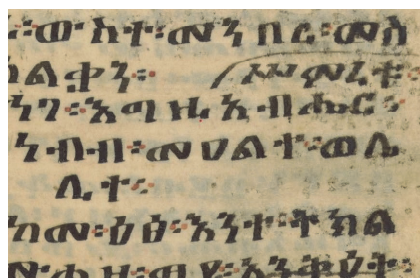 ውስተ፡መንበረ፡መስ
ልቃን፡ ሥምረቱ
እግዚአብሔር፡
ንብብ፡መዐልተ፡ወሌ
ሊተ፡
ከመ፡ዕፅ፡እንተ፡ትክል
እንተ፡